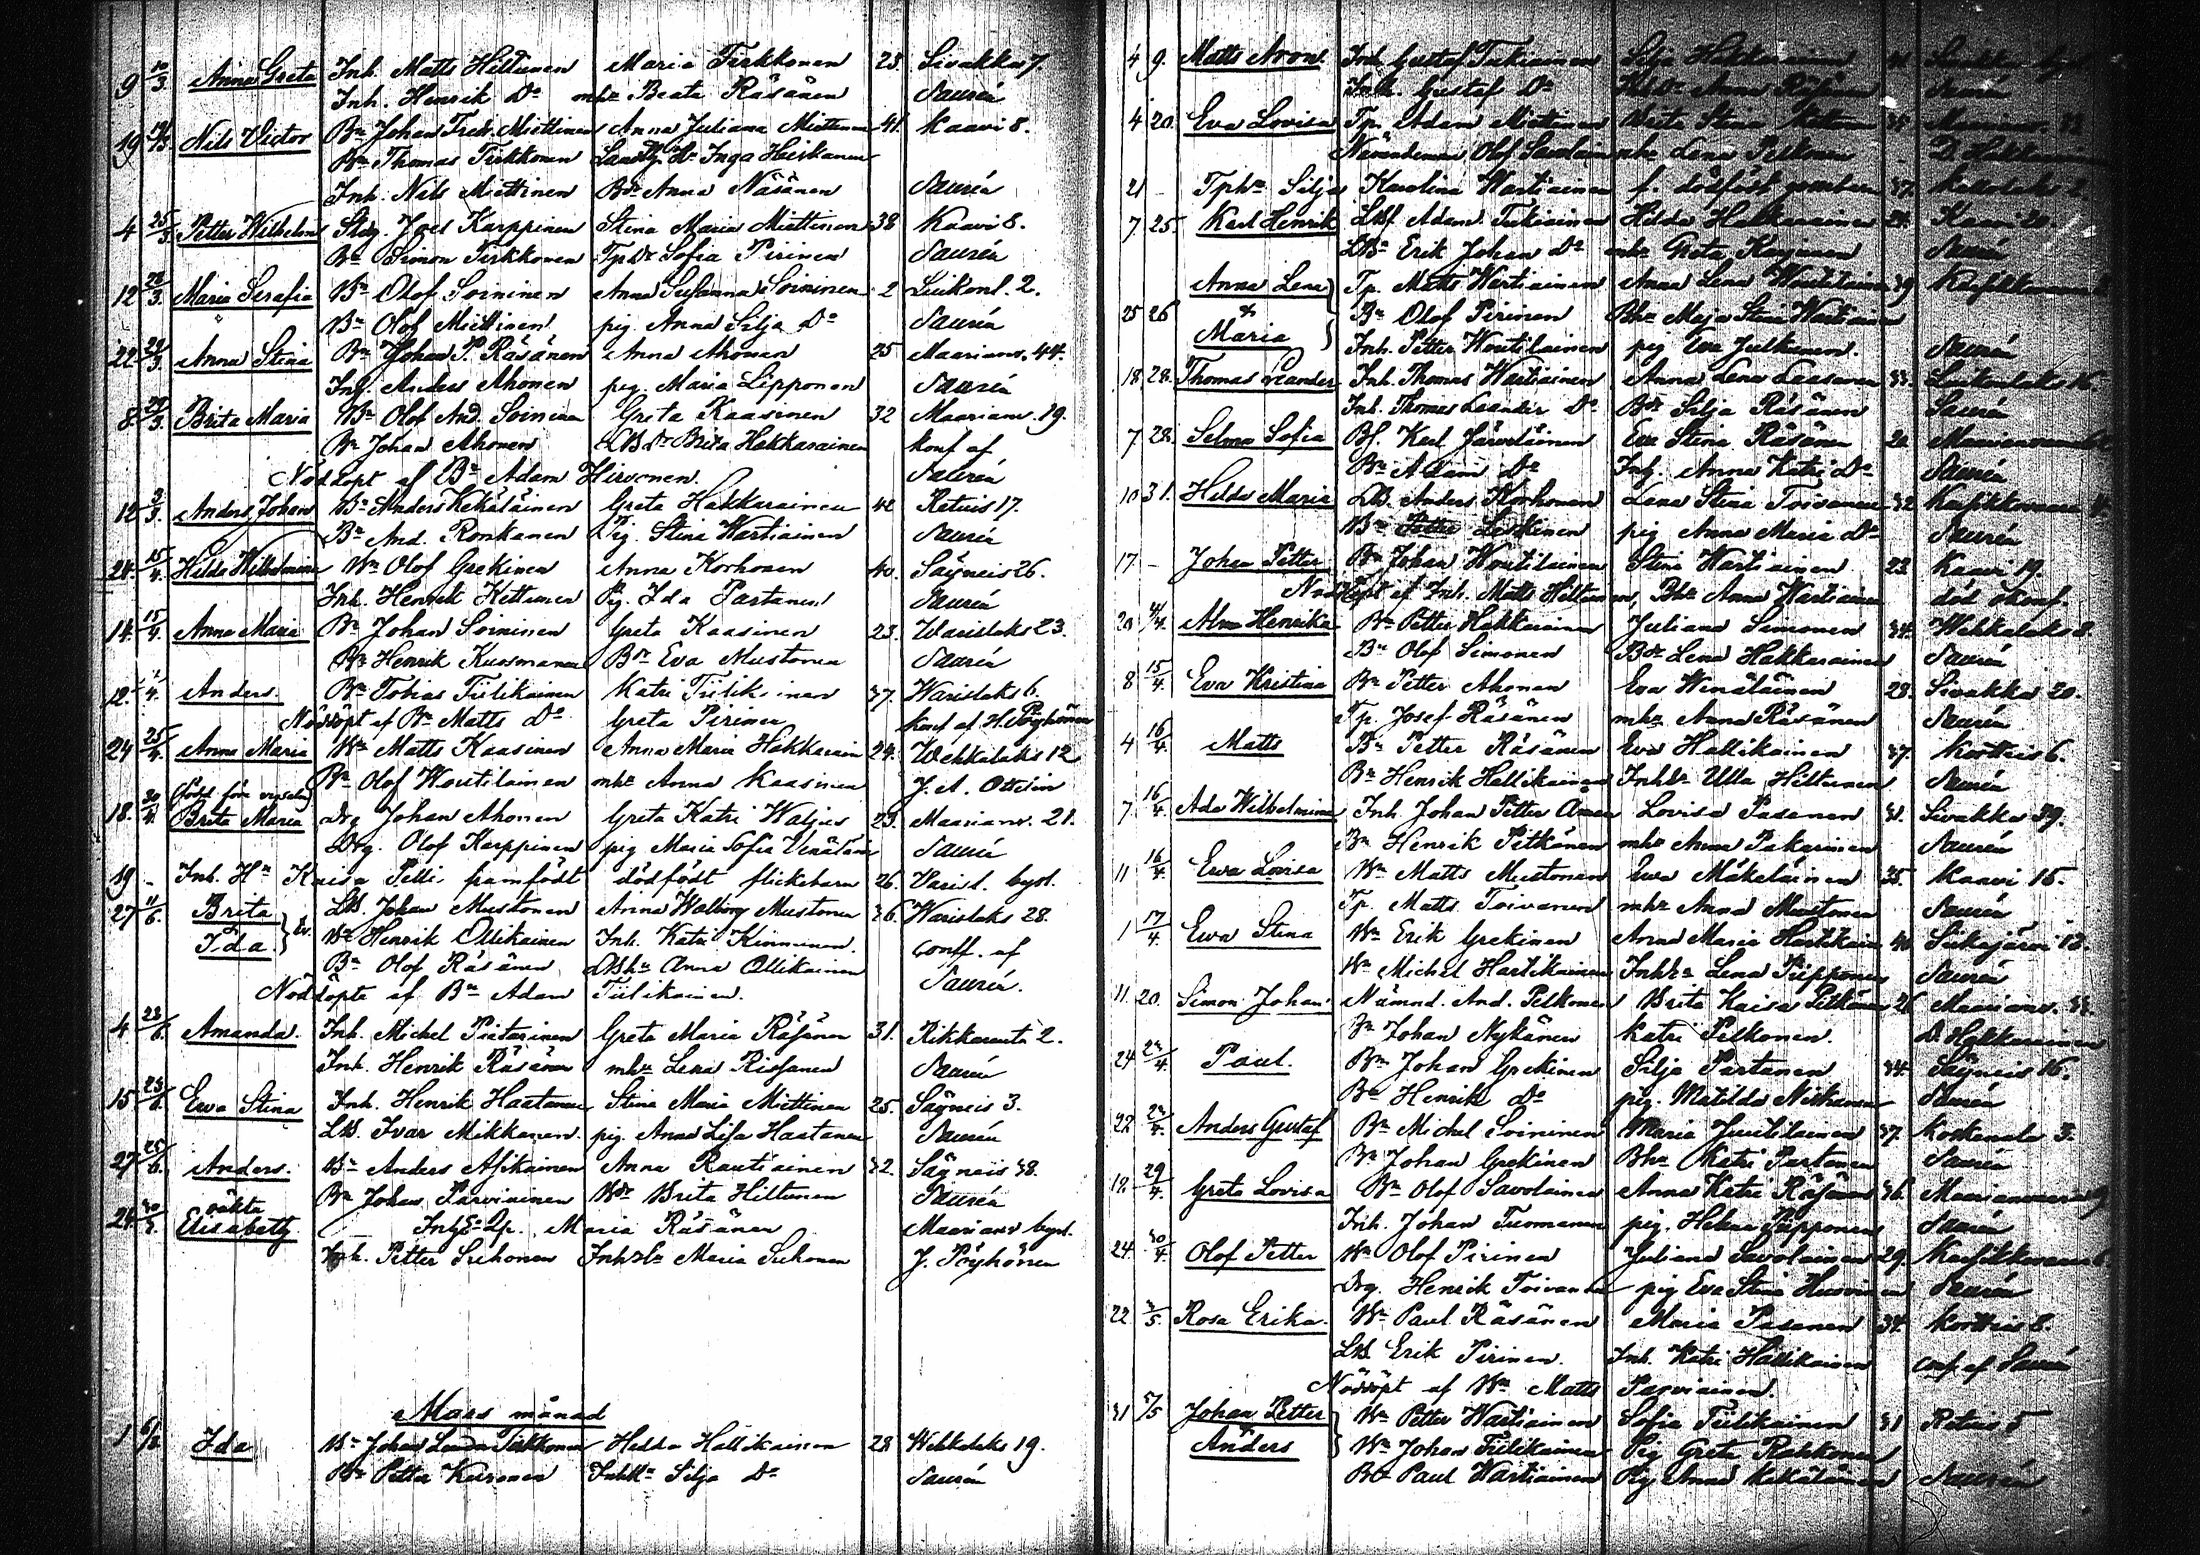 9 10/3 Anna Greta Inh. Matts Hiltunen Maria Tirkkonen 23. Sivakka 7
Inh. Henrik Do mhu Beata Räsänen Saurén
19 Nils Victor Bn Johan Fredr. Miettinen Anna Juliana Miettinen 41. Kaavi 8.
Bn Thomas Tirkkonen Inga Heiskanen
Inh. Nils Miettinen Bdr Anna Räsänen Saurén
4 25/3 Petter Wilhelm Joel Karppinen Stina Maria Miettinen 38 Kaavi 8.
Bn Simon Tirkkonen Tpdr Sofia Pirinen Saurén
12 28/3 Maria Serafia Bn Olof Soininen Anna Susanna Soininen 2 Luikonl. 2.
Bn Olof Miettinen pig. Anna Silja Do Saurén
22 29/3 Anna Stina Bn Johan P. Räsänen Anna Ahonen 25 Maarianv. 44.
Inh. Anders Ahonen pig. Maria Lipponen Saurén
8 29/3 Brita Maria Bn Olof And. Soininen Greta Kaasinen 32 Maarianv. 19.
Bn Johan Ahonen LBdr Brita Hakkarainen konf af
Nöddöpt af Bn Adam Hirvonen. Saurén
12 3/3 Anders Johan Bn Anders Kekäläinen Greta Hakkarainen 42 Retuis 17.
Bn And. Ronkanen Pig. Stina Wartiainen Saurén
24. 15/4. Hilda Wilhelmina Bn Olof Grekinen Anna Korhonen 40. Säyneis 26.
Inh. Henrik Kettunen Pig. Ida Partanen Saurén
14. 15/4. Anna Maria Bn Johan Soininen Greta Kaasinen 23. Warislaks 23.
Bn Henrik Kuosmanen Bdr Eva Mustonen Saurén
12. Anders. Bn Tobias Tiilikainen Katri Tiilikainen 37. Warislaks 6.
Nöddöpt af Bn Matts Do Greta Pirinen konf af H. Pöyhönen
24 25/4. Anna Maria Bn Matts Kaasinen Anna Maria Hakkarain 24. Wehkalaks 12
Bn Olof Woutilainen mhu Anna Kaasinen J. A. Ottelin
(född före vigseln)
18. 30/4. Brita Maria Drg Johan Ahonen Greta Katri Waljus 23. Maarianv. 21.
Drg. Olof Karppinen pig Maria Sofia Venäläin Saurén
19 - Inh. Hn Kaisa Pelli framfödt dödfödt flickebarn 26. Varisl. byst.
27 11/6. Brita LB. Johan Mustonen Anna Walborg Mustonen 36. Warislaks 28.
Ida. } tv. Bn Henrik Ollikainen Inh. Katri Kinnunen. conf. af
Bn Olof Räsänen LBhu Anna Ollikainen
Nöddöpte af Bn Adam Tiilikainen. Saurén.
4 23/6. Amanda. Inh. Michel Pietarinen Greta Maria Räsänen 31. Rikkaranta 2.
Inh. Henrik Räsänen mhu Lena Riosanen Saurén
15 23/6. Ewa Stina Inh. Henrik Haatanen Stina Maria Miettinen 25. Säyneis 3.
LB. Ivar Mikkanen. pig. Anna Lisa Haatanen Saurén
27 25/6. Anders. Bn Anders Asikainen Anna Rautiainen 32. Säyneis 38.
Bn Johan Parviainen Bdr Brita Hiltunen Saurén
oäkta
24 Elisabeth Maria Räsänen Maarianv byst.
Inh. Petter Sihonen Inhdr Maria Sihonen J. Pöyhönen
Mars månad
1 6/3 Ida Bn Johan Tirkkonen Hedda Hallikainen 28 Wehkalaks 19.
Bn Petter Kuronen Inhhu Silja Do Saurén
4 9. Matts Aron. Inh Gustaf Tukiainen Silja Hakkarainen
Inh. Gustaf Do Anna Räsänen Saurén
4 20. Eva Lovisa Tp. Adam Miettinen Brita Stina
Nämndeman Olof Savolainen mhu Lena Pelkonen D. Hakkarainen
21 - Tphu Silja Karolina Wartiainen f. dödfödt gossebarn 37.
7 25. Karl Henrik LBf. Adam Tukiainen Hilda Hakkarainen 24. Kaavi 20.
LBn Erik Johan Do mhu Greta Saurén
Anna Lena Tp. Matts Wartiainen Anna Lena Woutilainen 39
25 26 + Bn Olof Pirinen Bhu Maja Stina Wartiainen
Maria } Inh. Petter Woutilainen pig Eva Julkunen. Saurén
18 28. Thomas Leander Inh. Thomas Wartiainen Anna Lena Laasanen 33. Luikonlaks 16
Inh. Thomas Leander Do Bdr Silja Räsänen Saurén
7 28. Selma Sofia Bf. Karl Järveläinen Eva Stina Räsänen 20
Bn Adam Do Inh. Anna Katri Do Saurén
10 31. Hilda Maria LB. Anders Korhonen Lena Stina Toivanen 32
Bn Petter Leskinen pig Anna Maria Do Saurén
17 - Johan Petter Bn Johan Woutilainen Stina Wartiainen 23 Kaavi 19.
Nöddöpt af Inh. Matts Hiltunen, Bhu Anna Wartiainen död okonf.
20 4/4. Alma Henrika Bn Petter Hakkarainen Juliana Simonen 34. Wehkalaks 8
Bn Olof Simonen Bdr Lena Hakkarainen Saurén
8 15/4. Eva Kristina Bn Petter Ahonen Eva Wenäläinen 28. Sivakka 20.
Tp. Josef Räsänen mhu Anna Räsänen Saurén
4 16/4. Matts Bn Petter Räsänen Eva Hallikainen 37. Kortteis 6.
Bn Henrik Hallikainen Inhdr Ulla Hiltunen Saurén
7 16/4. Ada Wilhelmina Inh. Johan Petter Lovisa Pasanen 31. Sivakka 39.
Bn Henrik Pitkänen mhu Anna Pakarinen Saurén
11 16/4. Ewa Lovisa Bn Matts Mustonen Ewa Mäkeläinen 35. Kaavi 15.
Tp. Matts Toivanen mhu Anna Mustonen Saurén
1 17/4. Ewa Stina Bn Erik Grekinen Anna Maria Hartikain 40 Siikajärvi 13.
Bn Michel Hartikainen Inhdr Lena Piipponen Saurén
11. 20. Simon Johan Nämnd. And. Pelkonen Brita Kaisa Pitkänen 26 Maarianv.
Johan Nykänen Katri Pelkonen. D. Hakkarainen
24 24/4. Paul. Bn Johan Grekinen Silja Partanen 34. Säyneis 16.
Bn Henrik Do pig. Matilda Niskanen Saurén
22 Anders Gustaf Bn Michel Soininen Maria Juutilainen 37. Koskenala 3.
Bn Johan Grekinen Bhu Katri Partanen Saurén
12 29/4. Greta Lovisa Bn Olof Savolainen Anna Katri Räsänen 36. Maarianvaara
Inh. Johan Tuomanen pig. Helena Piipponen Saurén
24. 30/4. Olof Petter Bn Olof Pirinen Juliana Savolainen 29.
Drg. Henrik Toivanen pig Eva Stina Saurén
22 Rosa Erika. Bn Paul Räsänen Maria Pasanen 34. Kortteis 8.
LB. Erik Pirinen. Inh. Katri Hallikainen conf. af Saurén
Nöddöpt af Bn Matts Parviainen.
31 5/5 Johan Petter Bn Petter Wartiainen Sofia Tiilikainen 31 Retuis 5
Anders } Bn Johan Tiilikainen Pig Greta
Bn Paul Wartiainen Pig Anna Kekäläinen Saurén